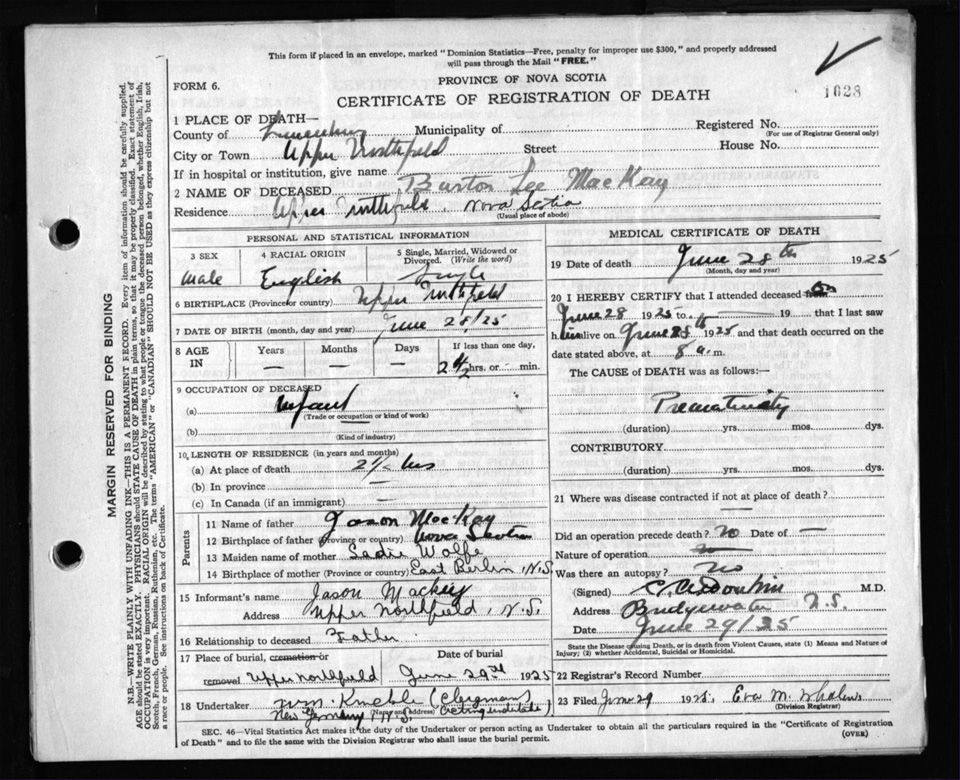 This form if placed in an envelope, marked "Dominion Statistics—Free, penalty for improper use $300," and properly addressed
will pass through the Mail "FREE."
FORM 6.
PROVINCE OF NOVA SCOTIA
CERTIFICATE OF REGISTRATION OF DEATH
1028
1 PLACE OF DEATH—
County of Lunenburg Municipality of Registered No.
(For use of Registrar General only)
City or Town Upper Northfield Street House No.
If in hospital or institution, give name
2 NAME OF DECEASED Burton Lee MacKay
Residence Upper Northfield, Nova Scotia
(Usual place of abode)
PERSONAL AND STATISTICAL INFORMATION
3 SEX 4 RACIAL ORIGIN 5 Single, Married, Widowed or
Divorced. (Write the word)
Male English Single
6 BIRTHPLACE (Province or country) Upper Northfield
7 DATE OF BIRTH (month, day and year) June 28/25
8 AGE IN Years — Months — Days — If less than one day,
2 1/2 hrs. or min.
9 OCCUPATION OF DECEASED
(a) Infant
(Trade or occupation or kind of work)
(b)
(Kind of industry)
10 LENGTH OF RESIDENCE (in years and months)
(a) At place of death 2 1/2 hrs
(b) In province —
(c) In Canada (if an immigrant) —
Parents
11 Name of father Jason MacKay
12 Birthplace of father (Province or country) Nova Scotia
13 Maiden name of mother Sadie Wolfe
14 Birthplace of mother (Province or country) East Berlin, N.S.
15 Informant's name Jason Mackay
Address Upper Northfield, N.S.
16 Relationship to deceased Father.
17 Place of burial, cremation or Date of burial
removal Upper Northfield June 29th 1925
18 Undertaker Wm. (Clergyman)
New Germany N.S. (Name and address) (acting
MEDICAL CERTIFICATE OF DEATH
19 Date of death June 28th 1925
(Month, day and year)
20 I HEREBY CERTIFY that I attended deceased from on
June 28 1925 to — 19 that I last saw
him alive on June 28th 1925 and that death occurred on
date stated above, at 8 a.m.
The CAUSE of DEATH was as follows:—
Prematurity
(duration) yrs. mos. dys.
CONTRIBUTORY.
(duration) yrs. mos. dys.
21 Where was disease contracted if not at place of death?
—
Did an operation precede death? no Date of —
Nature of operation
Was there an autopsy? No
(Signed) M.D.
Address Bridgewater N.S.
Date June 29/25
State the Disease causing Death, or in death from Violent Causes, state (1) Means and Nature of
Injury; (2) whether Accidental, Suicidal or Homicidal.
22 Registrar's Record Number
23 Filed June 29 1925. Eva M. Whalen
(Division Registrar)
SEC. 46—Vital Statistics Act makes it the duty of the Undertaker or person acting as Undertaker to obtain all the particulars required in the "Certificate of Registration
of Death" and to file the same with the Division Registrar who shall issue the burial permit.
(OVER)
MARGIN RESERVED FOR BINDING
N.B.—WRITE PLAINLY WITH UNFADING INK—THIS IS A PERMANENT RECORD. Every item of information should be carefully supplied.
AGE should be stated EXACTLY. PHYSICIANS should STATE CAUSE OF DEATH in plain terms, so that it may be properly classified. Exact statement of
OCCUPATION is very important. RACIAL ORIGIN will be described by stating to what people or tongue the deceased person belonged, whether English, Irish,
Scotch, French, German, Russian, Ruthenian, etc. The terms "AMERICAN" or "CANADIAN" SHOULD NOT BE USED as they express citizenship but not
a race or people. See instructions on back of Certificate.